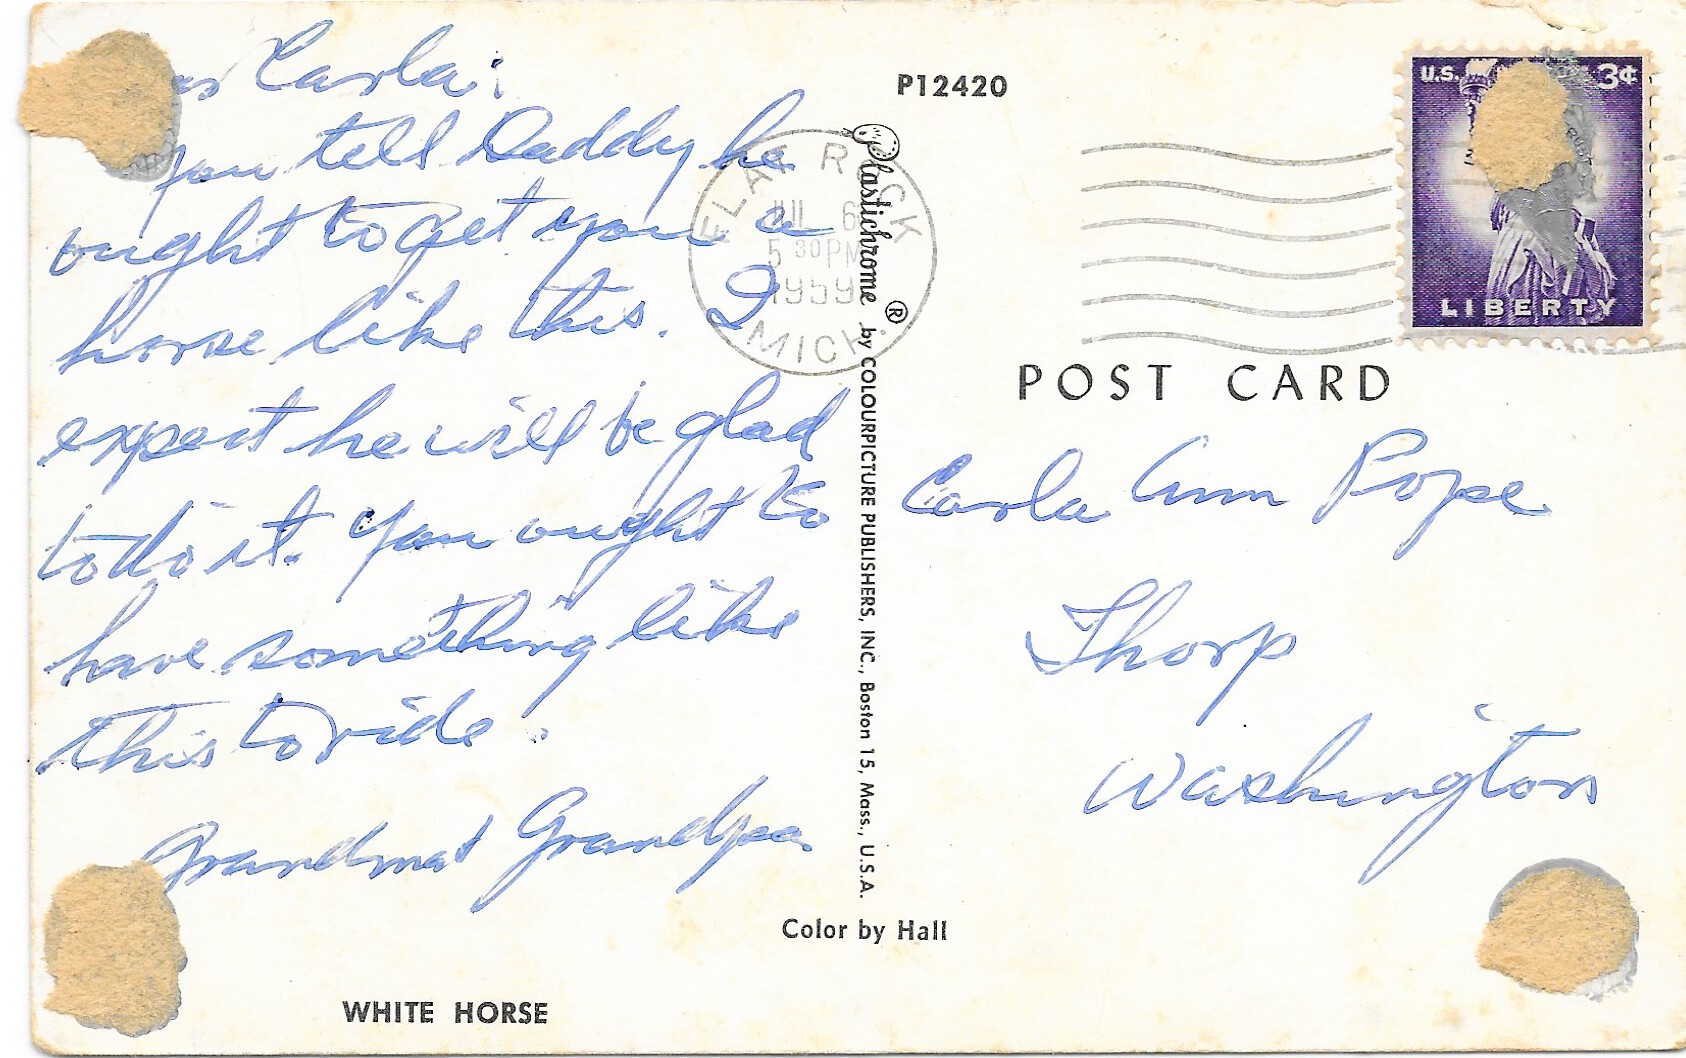 Carla:
You tell Daddy he
ought to get you a
horse like this. I
expect he will be glad
to do it. You ought to
have something like
this to ride.
Grandma & Grandpa
WHITE HORSE
P12420
Plastichrome ® by COLOURPICTURE PUBLISHERS, INC., Boston 15, Mass., U.S.A.
Color by Hall
FLAT ROCK
JUL 6
5 30 PM
1959
MICH.
U.S. 3¢
LIBERTY
POST CARD
Carla Ann Pope
Thorp
Washington